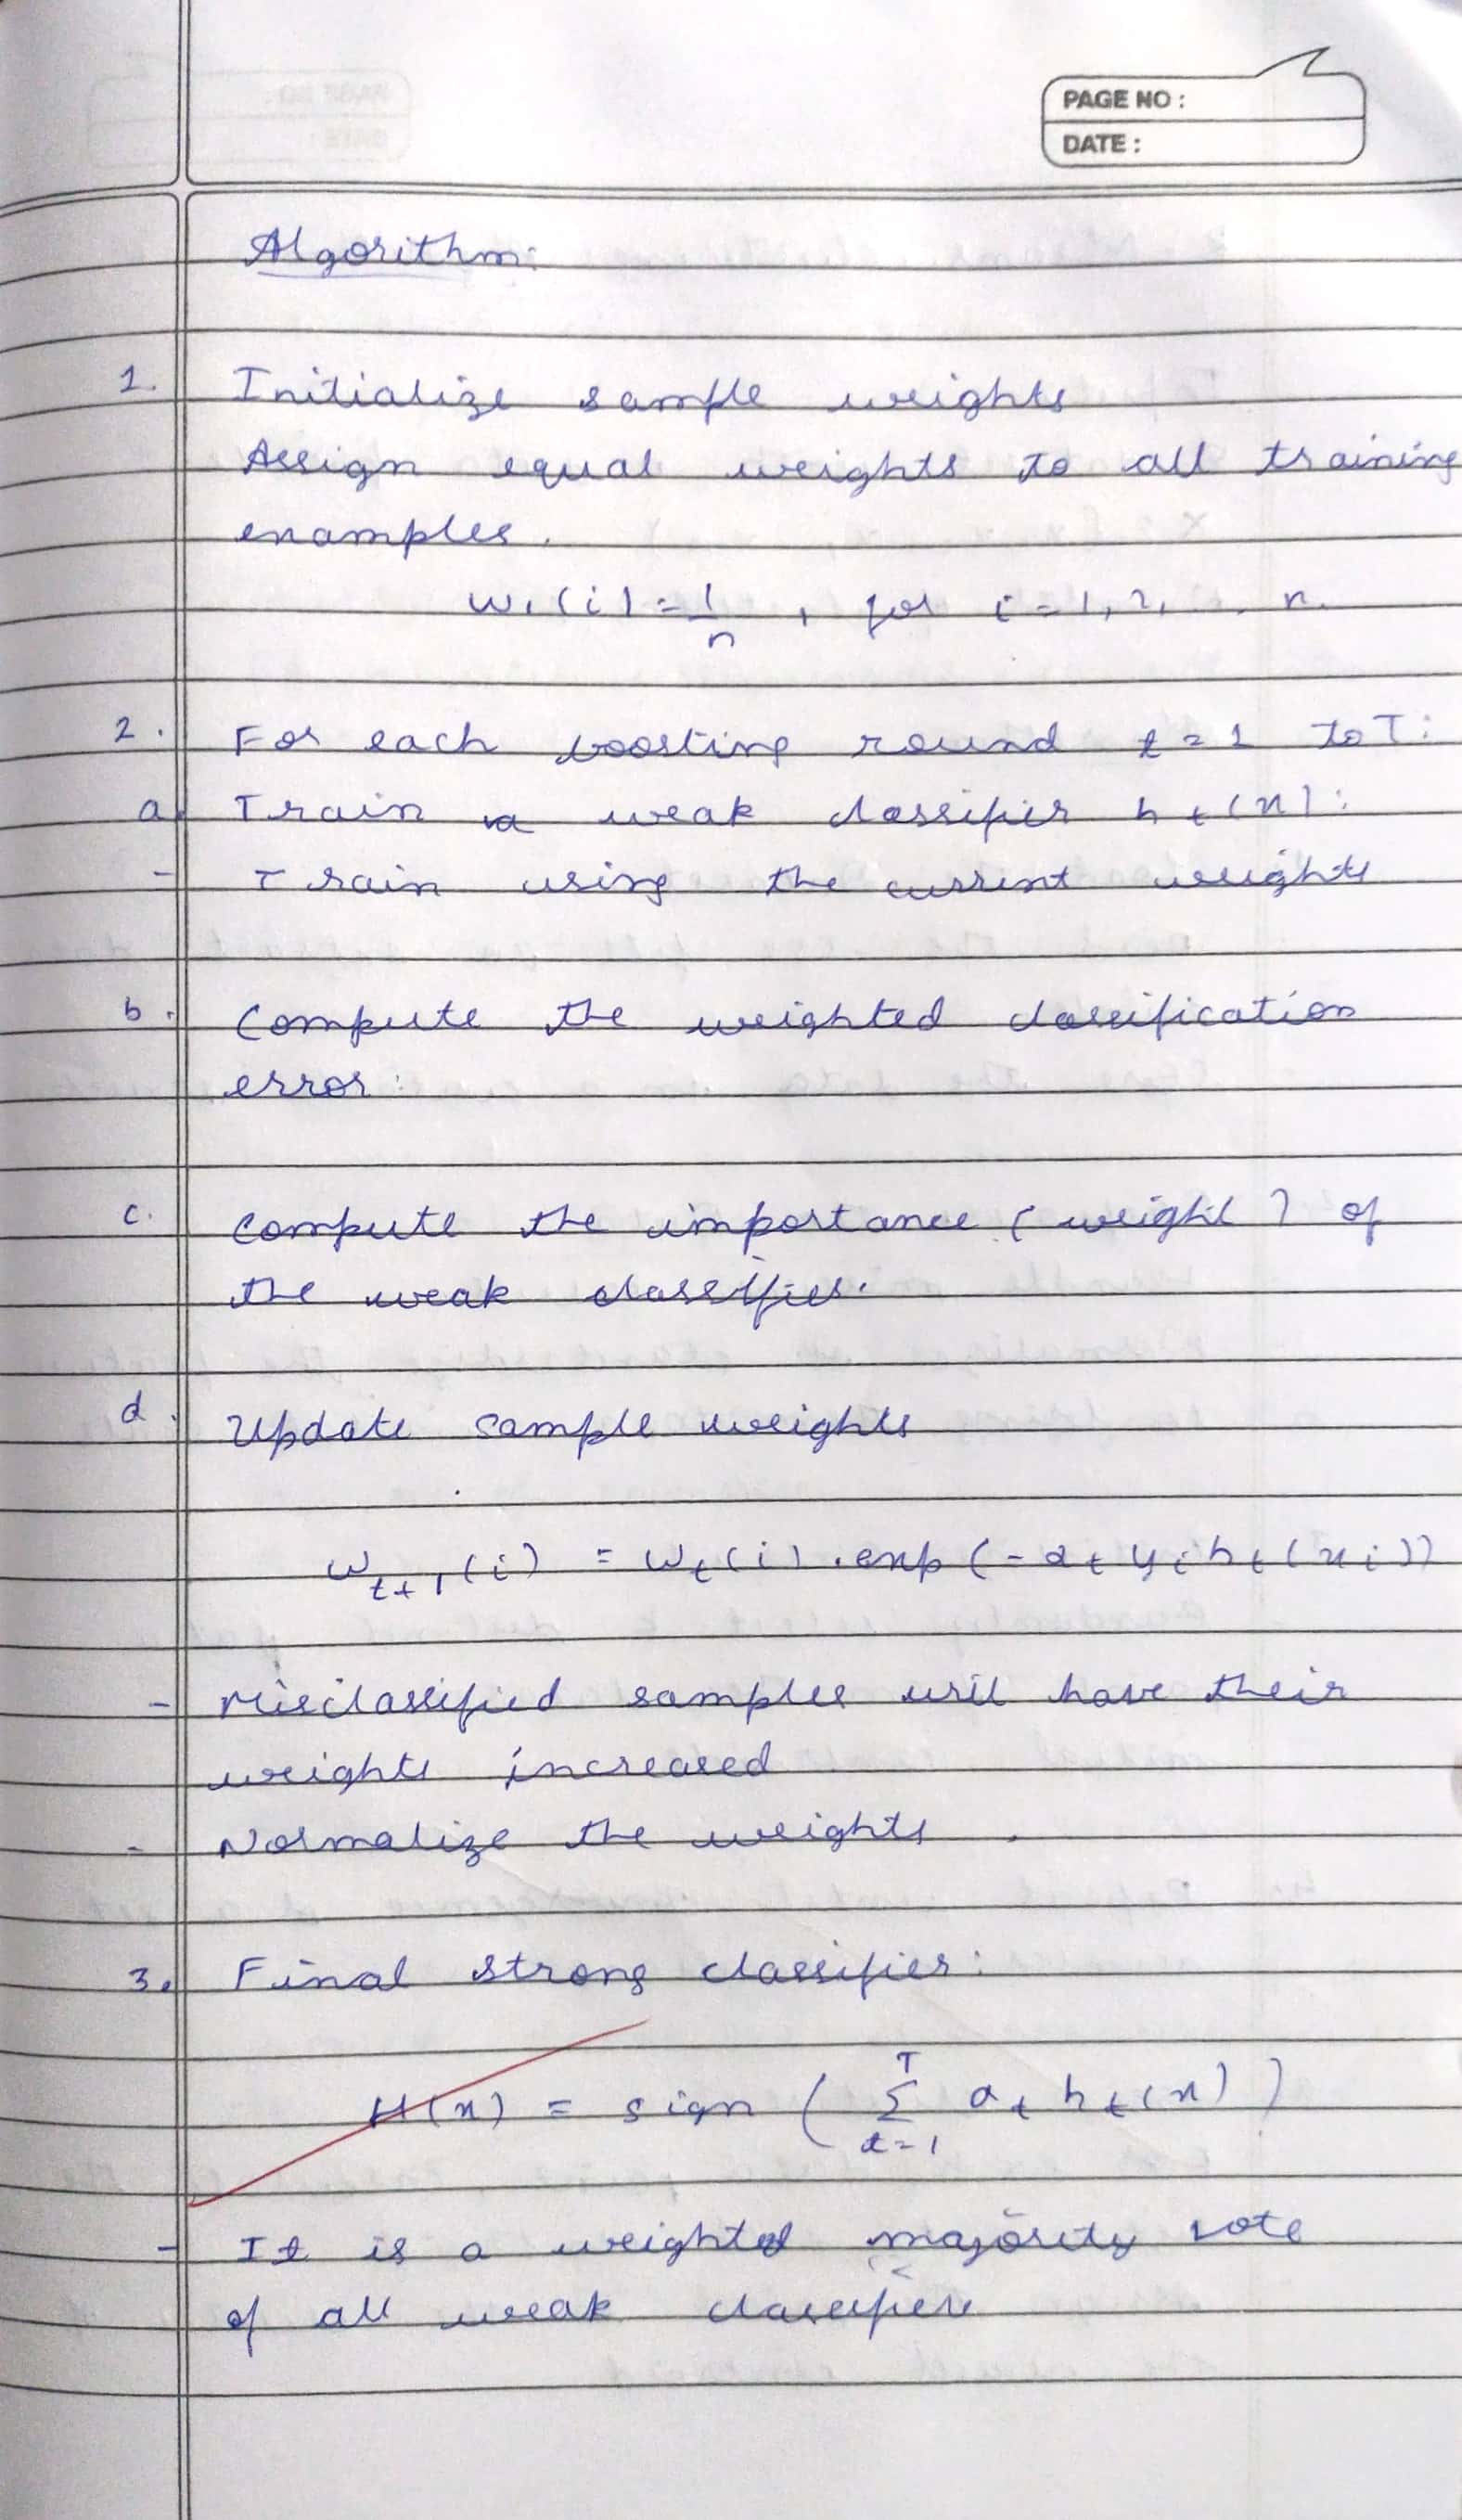 PAGE NO :
DATE :
Algorithm:
1. Initialize sample weights
Assign equal weights to all training
examples.
w₁(i) = 1/n , for i = 1, 2, ... n.
2. For each boosting round t = 1 to T:
a. Train a weak classifier hₜ(x):
- Train using the current weights
b. Compute the weighted classification
error:
c. Compute the importance (weight) of
the weak classifier.
d. Update sample weights
wₜ₊₁(i) = wₜ(i) . exp(-αₜ yᵢ hₜ(xᵢ))
- Misclassified samples will have their
weights increased
- Normalize the weights.
3. Final strong classifier:
H(x) = sign ( Σ_{t=1}^{T} αₜ hₜ(x) )
- It is a weighted majority vote
of all weak classifiers